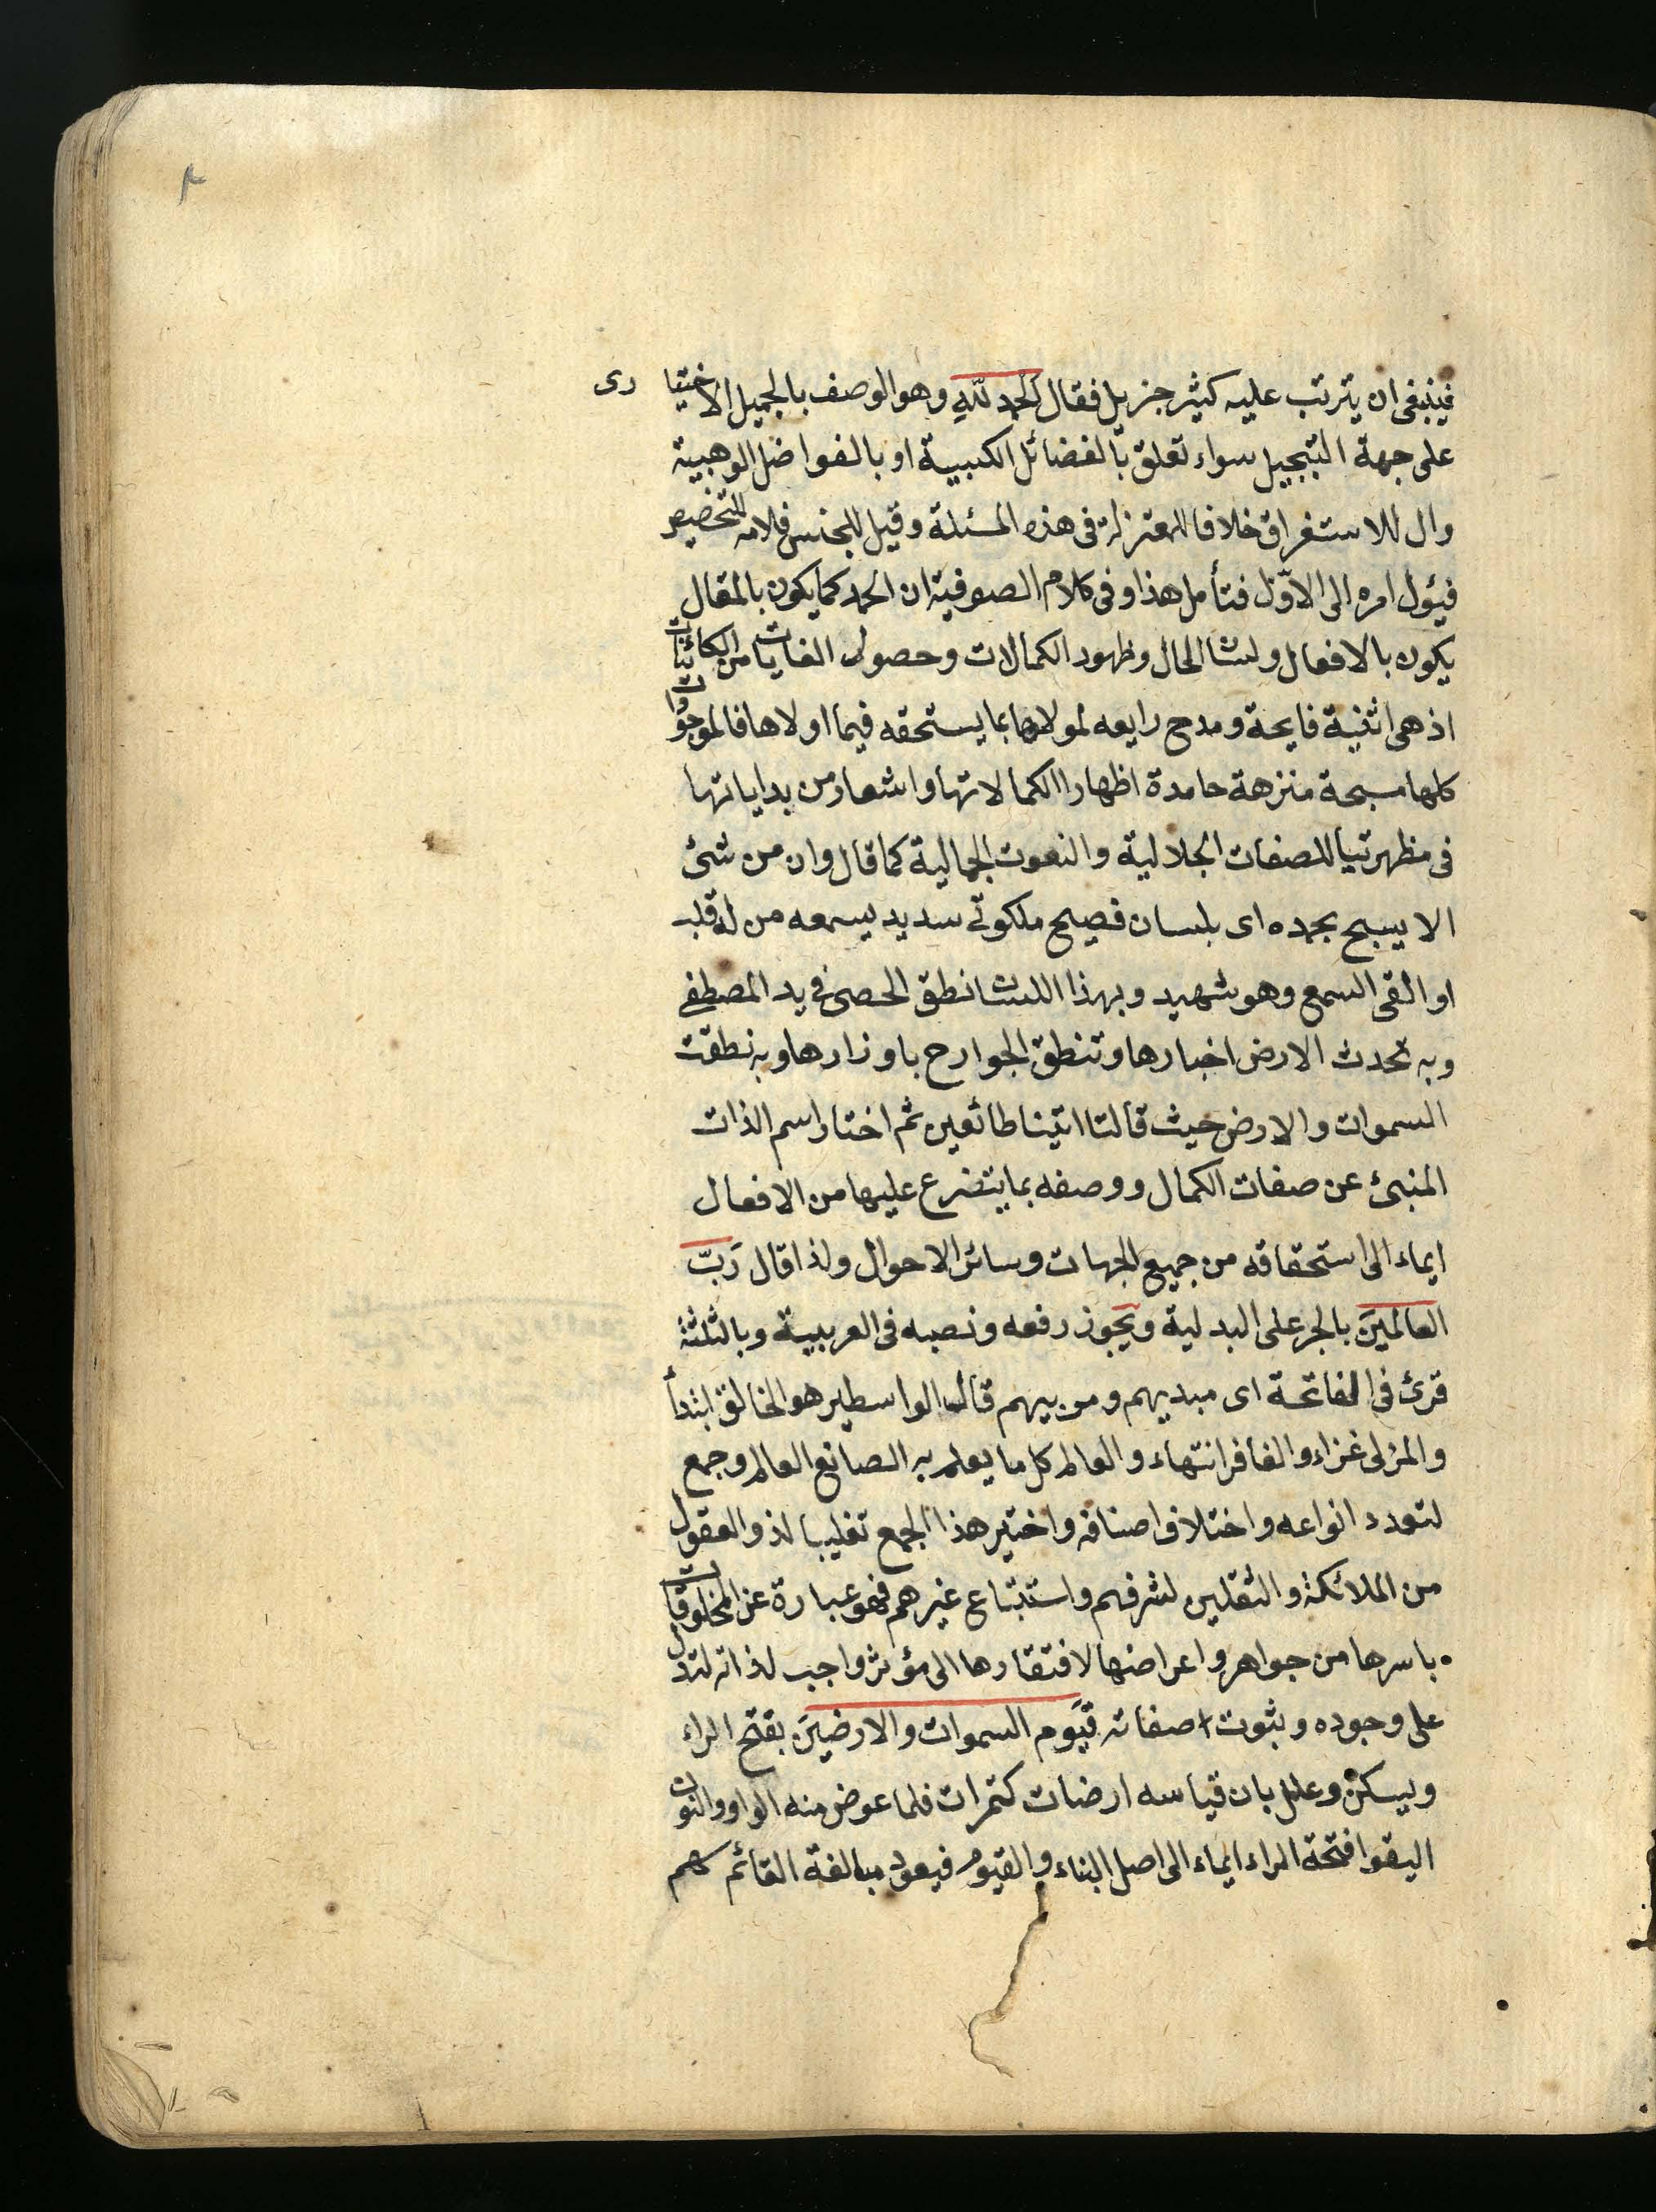 فينبغى ان يترتب عليه كثير جزيل فقال الحمد لله وهو الوصف بالجميل الاختيارى
على جهة التبجيل سواء تعلق بالفضائل الكسبية او بالفواضل الوهبية
وال للاستغراق خلافا للمعتزلة فى هذه المسئلة وقيل للجنس فلامه للتخصيص
فيئول امره الى الاوّل فتأمل هذا وفى كلام الصوفية ان الحمد كما يكون بالمقال
يكون بالافعال ولسان الحال وظهور الكمالات وحصول الغايات من الكائنات
اذ هى اثنية فايحة ومدح رايعه لمولاها بما يستحقه فيما اولاها فالموجودات
كلها مسبحة منزهة حامدة اظهارا لكمالاتها واشعار من بداياتها
فى مظهرتيا للصفات الجلالية والنعوت الجمالية كما قال وان من شئ
الا يسبح بحمده اى بلسان فصيح ملكوتى سديد يسمعه من له قلب
او القى السمع وهو شهيد وبهذا اللسان نطق الحصى فى يد المصطفى
وبه تحدث الارض اخبارها وتنطق الجوارح باوزارها وبه نطقت
السموات والارض حيث قالتا اتينا طائعين ثم اختار اسم الذات
المنبئ عن صفات الكمال ووصفه بما يتفرع عليها من الافعال
ايماء الى استحقاقه من جميع الجهات وسائر الاحوال ولذا قال رَبّ
العالمينَ بالجر على البدلية ويجوز رفعه ونصبه فى العربية وبالثلثة
قرئ فى الفاتحة اى مبديهم ومربيهم قال الواسطير هو الخالق ابتدأ
والمربى غزاء والغافر انتهاء والعالم كل ما يعلم به الصانع العالم وجمع
لتعدد انواعه واختلاف اصنافه واختير هذا الجمع تغليبا لذو العقول
من الملائكة والثقلين لشرفهم واستتباع غيرهم فهو عبارة عن المخلوقات
باسرها من جواهر واعراضها لافتقارها الى مؤثر واجب لذاته لتدل
على وجوده وبثوت صفاته قيّوم السموات والارضينَ بفتح الراء
ويسكن وعلل بان قياسه ارضات كتمرات فلما عوض منه الواو والنون
اليقوا فتحة الراء ايماء الى اصل البناء والقيوم فيعول مبالغة القائم